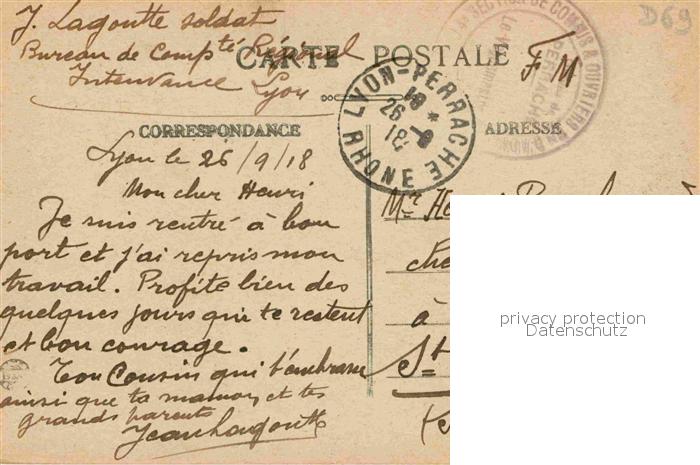 J. Lagoutte soldat
Bureau de Compté Régional
Intendance Lyon
CARTE POSTALE
F M
D69
4e SECTION DE COMMIS & OUVRIERS
LYON-PERRACHE
18 *
26 - 9
18
RHONE
CORRESPONDANCE
ADRESSE
Lyon le 26/9/18
Mon cher Henri
Je suis rentré à bon
port et j'ai repris mon
travail. Profite bien des
quelques jours qui te restent
et bon courage.
Ton Cousin qui t'embrasse
ainsi que ta maman et tes
grands parents
Jean Lagoutte
Mr He
che
à
St
privacy protection
Datenschutz